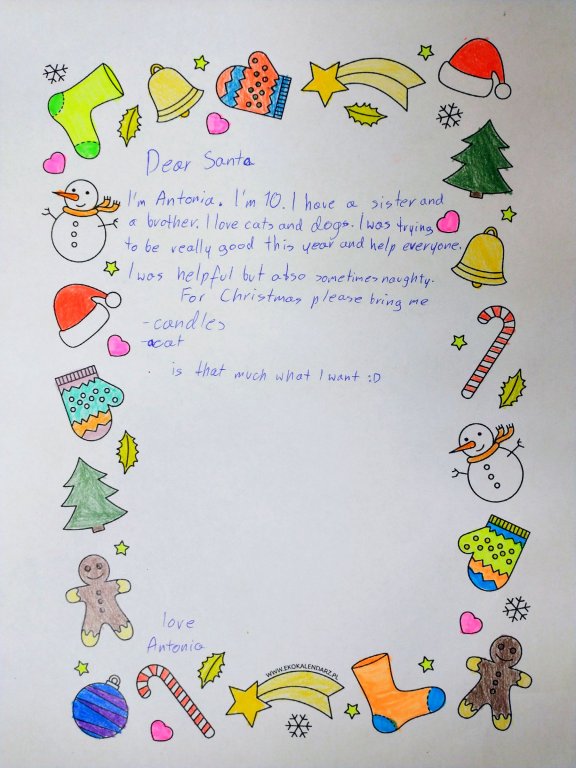 Dear Santa
I'm Antonia. I'm 10. I have a sister and
a brother. I love cats and dogs. I was trying
to be really good this year and help everyone.
I was helpful but also sometimes naughty.
For Christmas please bring me
-candles
-a cat
is that much what I want :D
love
Antonia
WWW.EKOKALENDARZ.PL